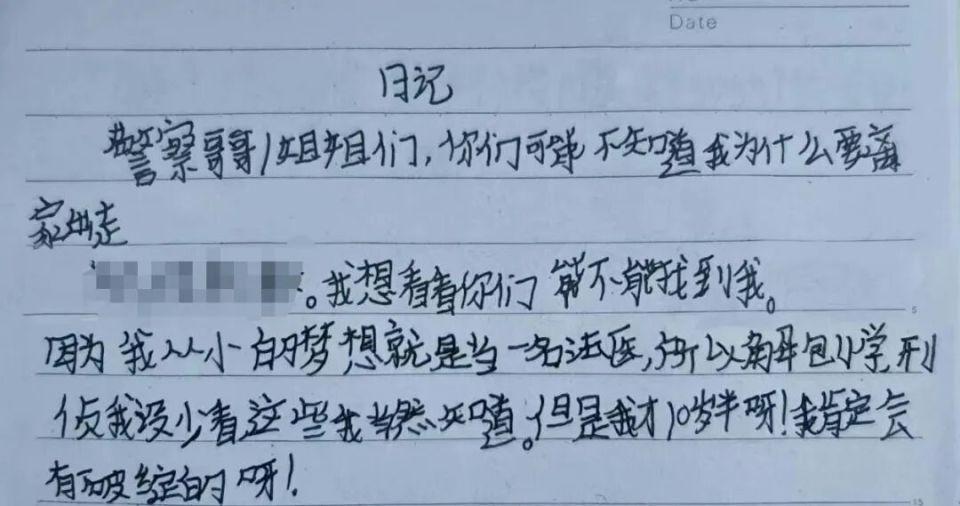 Date
日记
警察哥哥/姐姐们，你们可能不知道我为什么要离
家出走
。我想看看你们能不能找到我。
因为我从小的梦想就是当一名法医，所以解剖学刑
侦我没少看，这些我当然知道。但是我才10岁半呀！我肯定会
有破绽的呀！